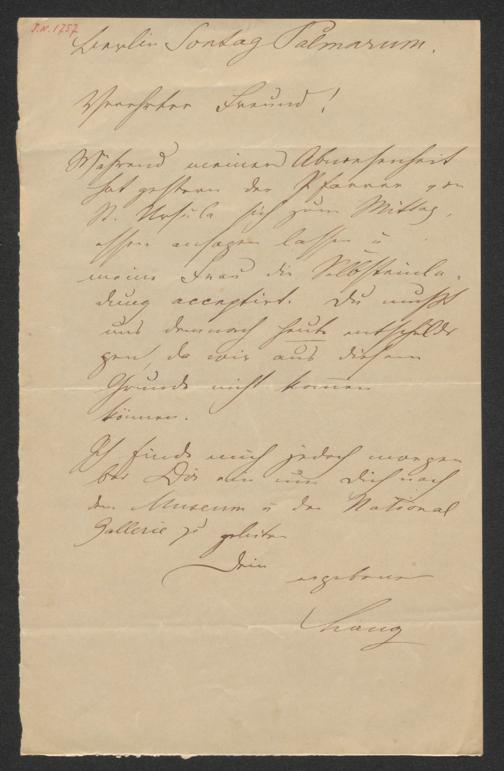 I.N. 1757
Berlin Sontag Palmarum.
Verehrter Freund!
Während meiner Abwesenheit
hat gestern der Pfarrer von
St. Ursula sich zum Mittag,
essen ansagen lassen u
meine Frau die Selbsteinla,
dung acceptirt. Du mußt
uns demnach heute entschuldi
gen, da wir aus diesem
Grunde nicht kommen
können.
Ich finde mich jedoch morgen
bei Dir ein um Dich nach
dem Museum u der National
Gallerie zu geleiten
Dein
ergebener